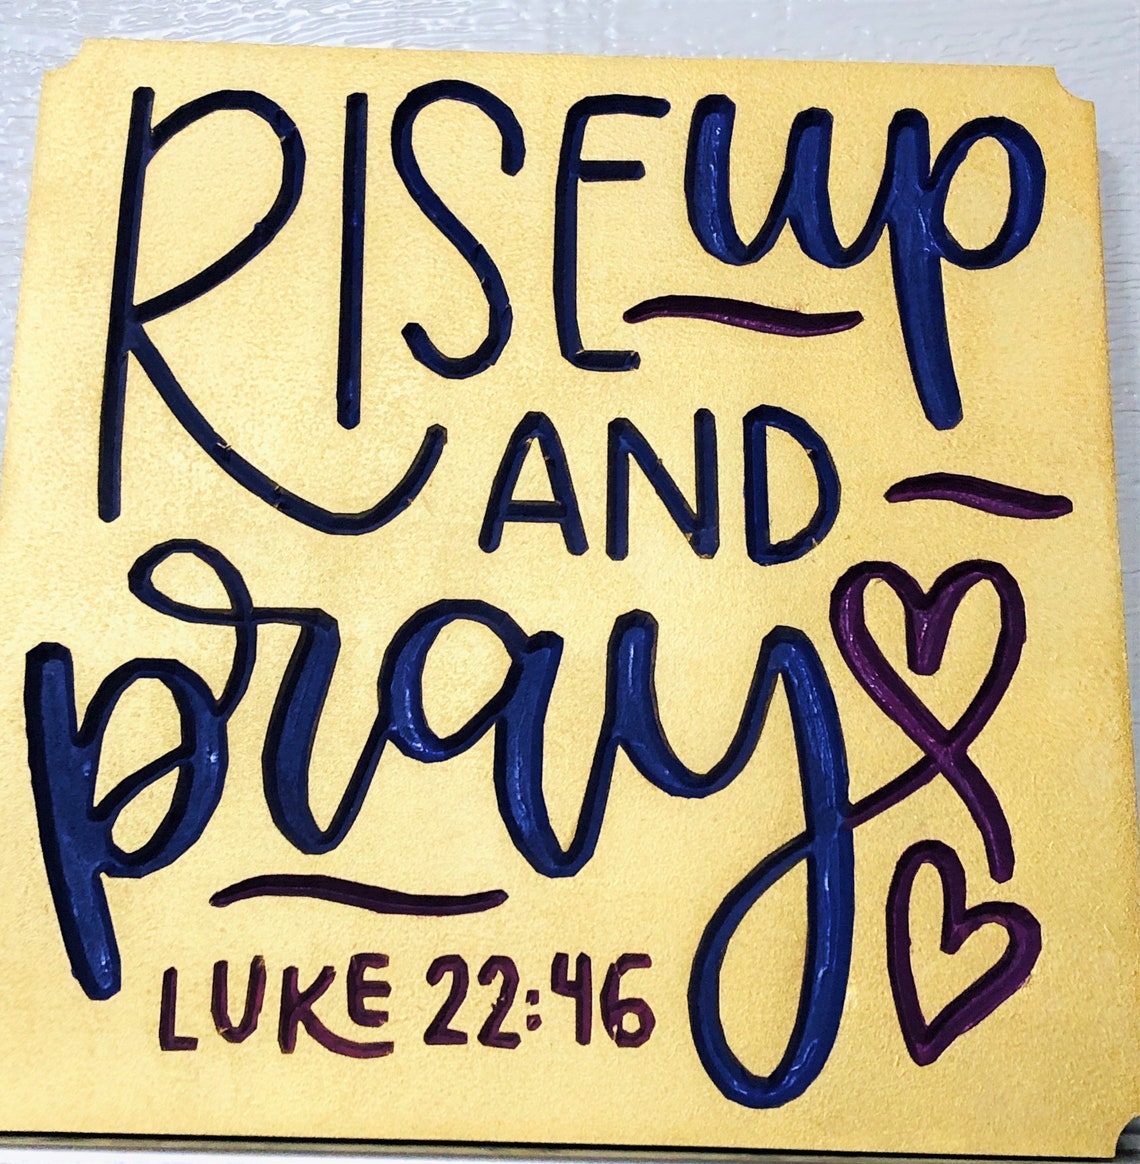 RISE up
AND
pray
LUKE 22:46